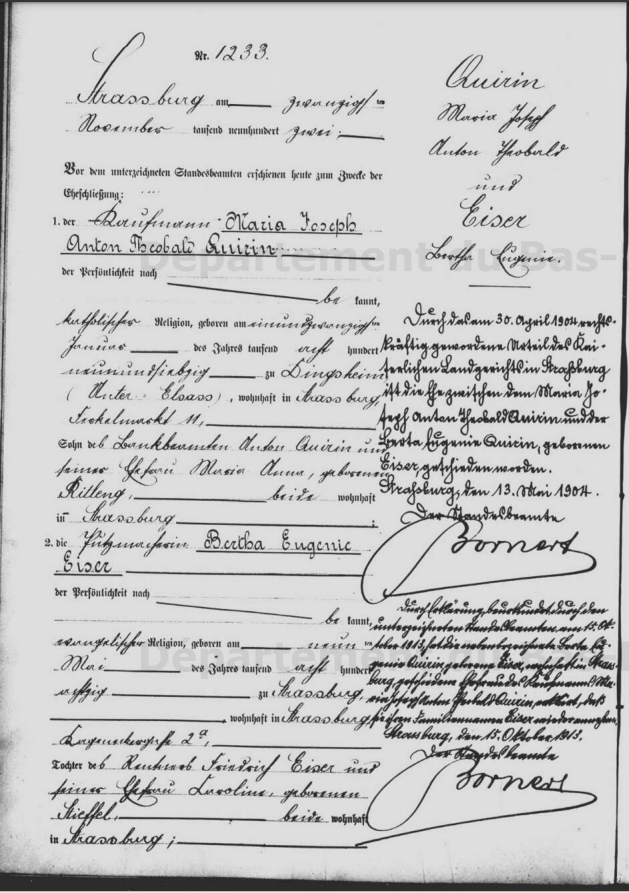 Nr. 1233.
Strassburg am zwanzigsten
November tausend neunhundert zwei.
Vor dem unterzeichneten Standesbeamten erschienen heute zum Zwecke der
Eheschließung:
1. der Kaufmann Maria Joseph
Anton Theobald Quirin
der Persönlichkeit nach
be kannt,
katholischer Religion, geboren am einundzwanzigsten
Januar des Jahres tausend acht hundert
neunundsiebzig zu Dingsheim
(Unter-Elsass), wohnhaft in Strassburg,
Ferkelmarkt 11,
Sohn des Bankbeamten Anton Quirin und
seiner Ehefrau Maria Anna, geborenen
beide wohnhaft
in Strassburg;
2. die Putzmacherin Bertha Eugenie
Eiser
der Persönlichkeit nach
be kannt,
evangelischer Religion, geboren am neunten
Mai des Jahres tausend acht hundert
achtzig zu Strassburg,
wohnhaft in Strassburg
Kageneckergasse 2a,
Tochter des Rentners Friedrich Eiser und
seiner Ehefrau Caroline, geborenen
Stieffel, beide wohnhaft
in Strassburg;
Quirin
Maria Joseph
Anton Theobald
und
Eiser
Bertha Eugenie.
Durch das am 30. April 1904 rechts-
kräftig gewordene Urteil des Kai-
serlichen Landgerichts in Straßburg
ist die Ehe zwischen dem Maria Jo-
seph Anton Theobald Quirin und der
Berta Eugenie Quirin, geborenen
Eiser, geschieden worden.
Straßburg, den 13. Mai 1904.
Der Standesbeamte
Bornert
Durch Erklärung, beurkundet durch den
unterzeichneten Standesbeamten am 15. Ok-
tober 1913, hat die nebenbezeichnete Berta Eu-
genie Quirin geborene Eiser, wohnhaft in Strass-
burg, geschiedene Ehefrau des Kaufmanns Ma-
ria Joseph Anton Theobald Quirin, erklärt, daß
sie ihren Familiennamen Eiser wieder annehme.
Strassburg, den 15. Oktober 1913.
Der Standesbeamte
Bornert
Département du Bas-